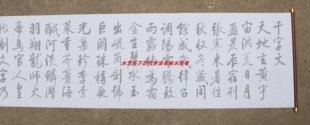 千字文
天地玄黃宇
宙洪荒日月
盈昃辰宿列
張寒來暑往
秋收冬藏閏
餘成歲律呂
調陽雲騰致
雨露結為霜
金生麗水玉
出崑岡劍號
巨闕珠稱夜
光果珍李柰
菜重芥薑海
鹹河淡鱗潛
羽翔龍師火
帝鳥官人皇
始制文字乃